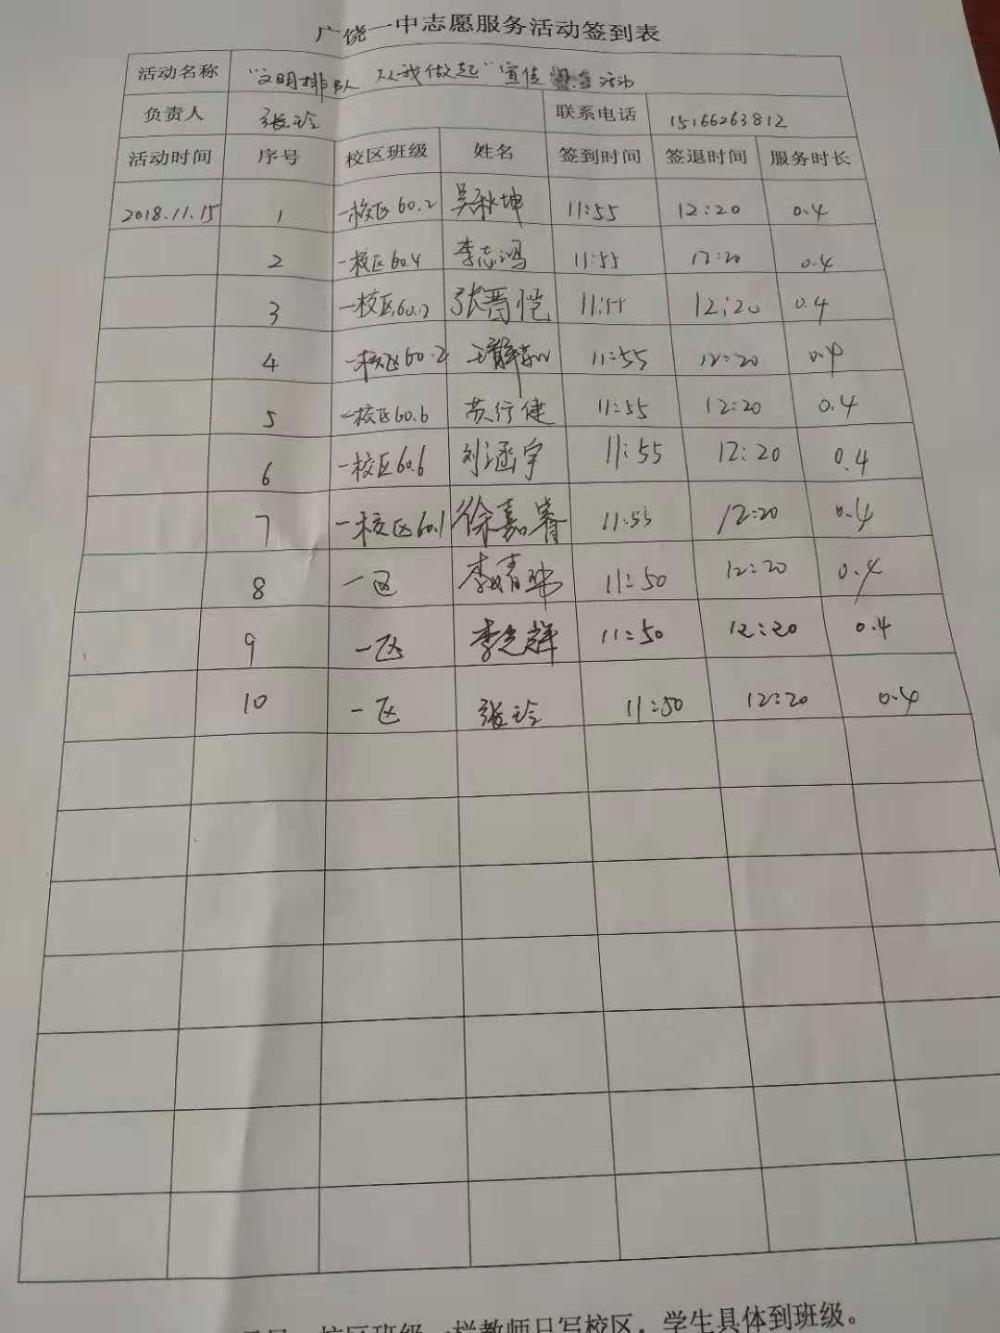 广饶一中志愿服务活动签到表
活动名称 "文明排队 从我做起"宣传 活动
负责人 张玲 联系电话 15166263812
活动时间 序号 校区班级 姓名 签到时间 签退时间 服务时长
2018.11.15 1 一校区60.2 吴秋坤 11:55 12:20 0.4
2 一校区60.4 李志鸿 11:55 12:20 0.4
3 一校区60.2 张晋恺 11:55 12:20 0.4
4 一校区60.2 11:55 12:20 0.4
5 一校区60.6 苏行健 11:55 12:20 0.4
6 一校区60.6 刘涵宇 11:55 12:20 0.4
7 一校区60.1 徐嘉睿 11:55 12:20 0.4
8 一区 李婧玮 11:50 12:20 0.4
9 一区 李光辉 11:50 12:20 0.4
10 一区 张玲 11:50 12:20 0.4
校区班级一栏教师只写校区，学生具体到班级。